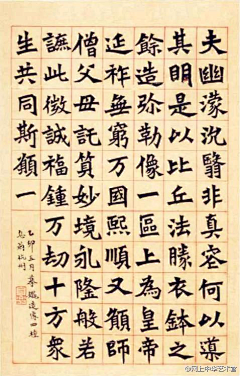 夫幽濛沉翳非真容何以蕩
其明是以比丘法勝衣鉢之
餘造弥勒像一區上為皇帝
延祚無窮万國熙順又願師
僧父母託質妙境永隆般若
此微誠福鍾万劫十方衆
生共同斯願一
乙卯五月
杭州
@网上中华艺术